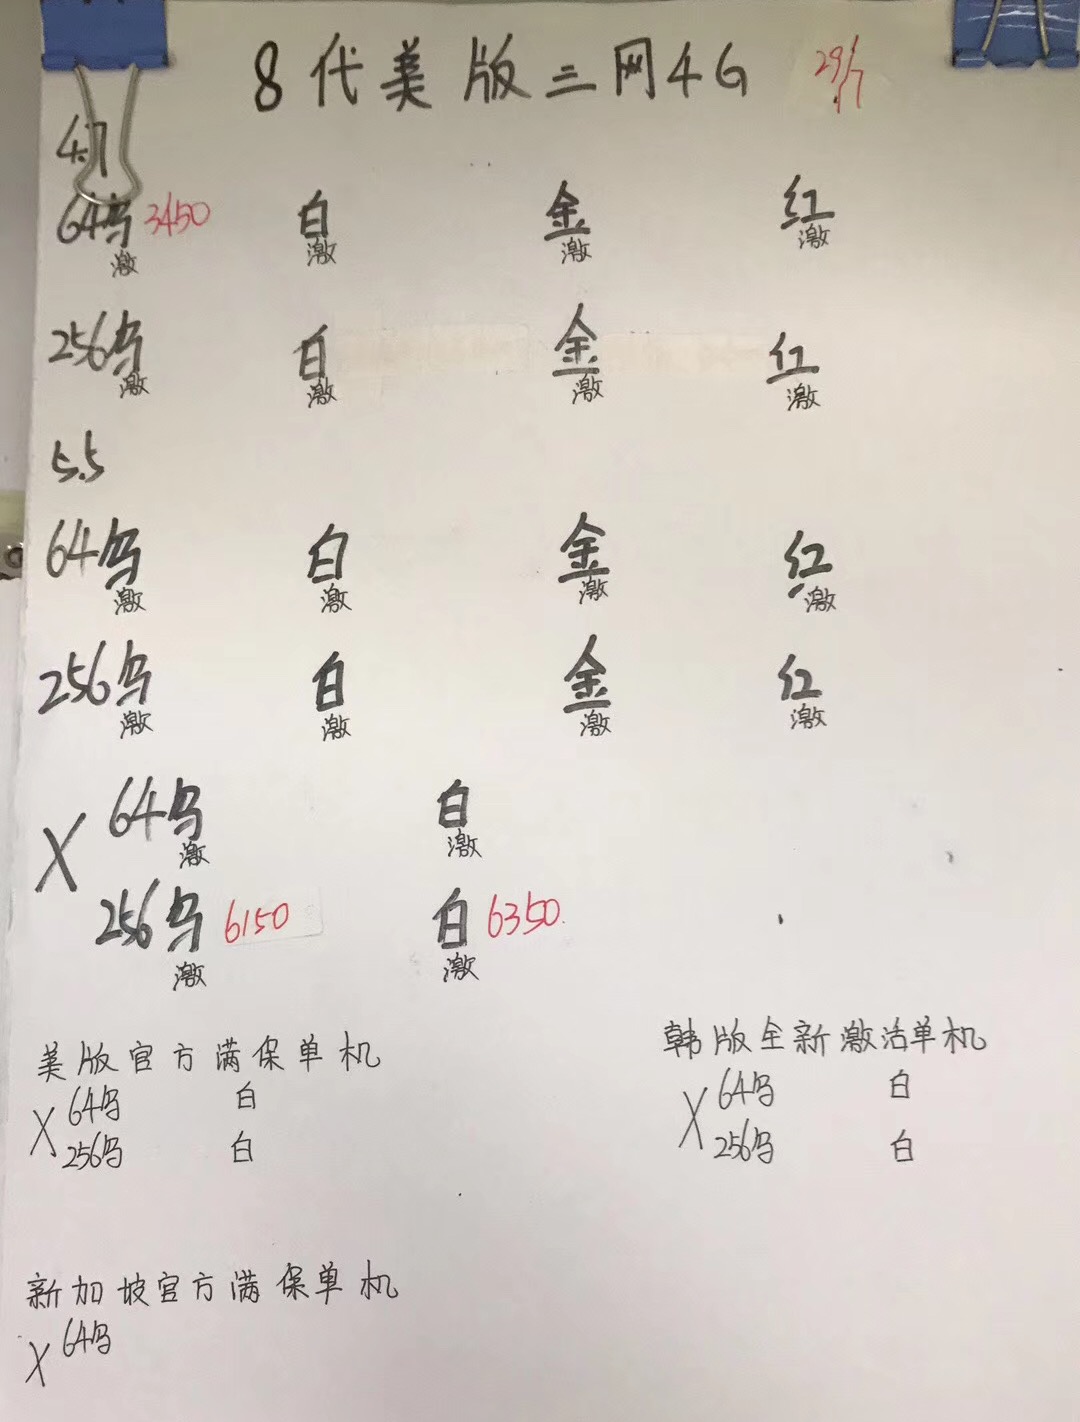 8代美版三网4G 29/7
4.7
64乌 3450 白 金 红
激 激 激 激
256乌 白 金 红
激 激 激 激
5.5
64乌 白 金 红
激 激 激 激
256乌 白 金 红
激 激 激 激
X 64乌 白
激 激
256乌 6150 白 6350
激 激
美版官方满保单机
X 64乌 白
256乌 白
韩版全新激活单机
X 64乌 白
256乌 白
新加坡官方满保单机
X 64乌